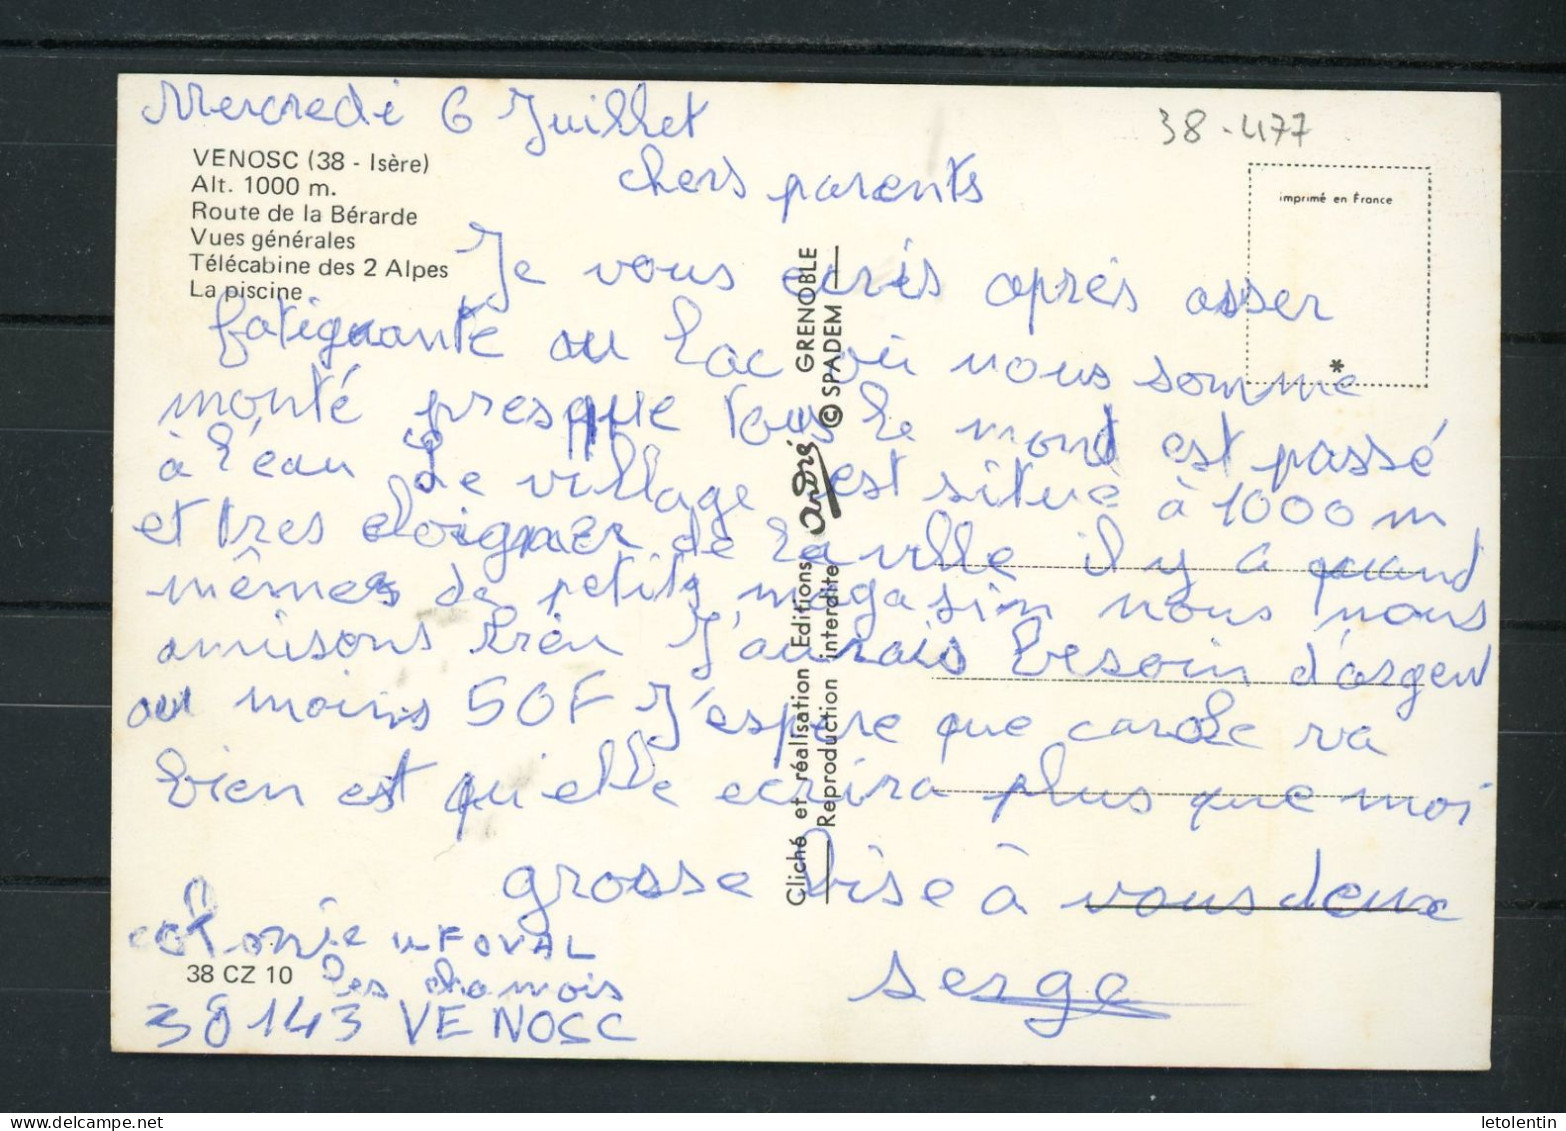 Mercredi 6 Juillet
38-477
VENOSC (38 - Isère)
Alt. 1000 m.
Route de la Bérarde
Vues générales
Télécabine des 2 Alpes
La piscine
imprimé en France
*
chers parents
Je vous ecris après asser
fatiguante au lac où nous somme
monté presque tous le mond est passé
à l'eau Le village est situe à 1000 m
et tres eloigner de la ville il y a quand
mêmes de petits magasin nous nous
amusons bien J'aurais besoin d'argent
au moins 50F J'espere que carole va
bien est qu'elle ecrira plus que moi
grosse bise à vous deux
serge
colonie INFOVAL
Les chamois
38143 VENOSC
38 CZ 10
Cliché et réalisation Editions André GRENOBLE
Reproduction interdite © SPADEM
delcampe.net
letolentin